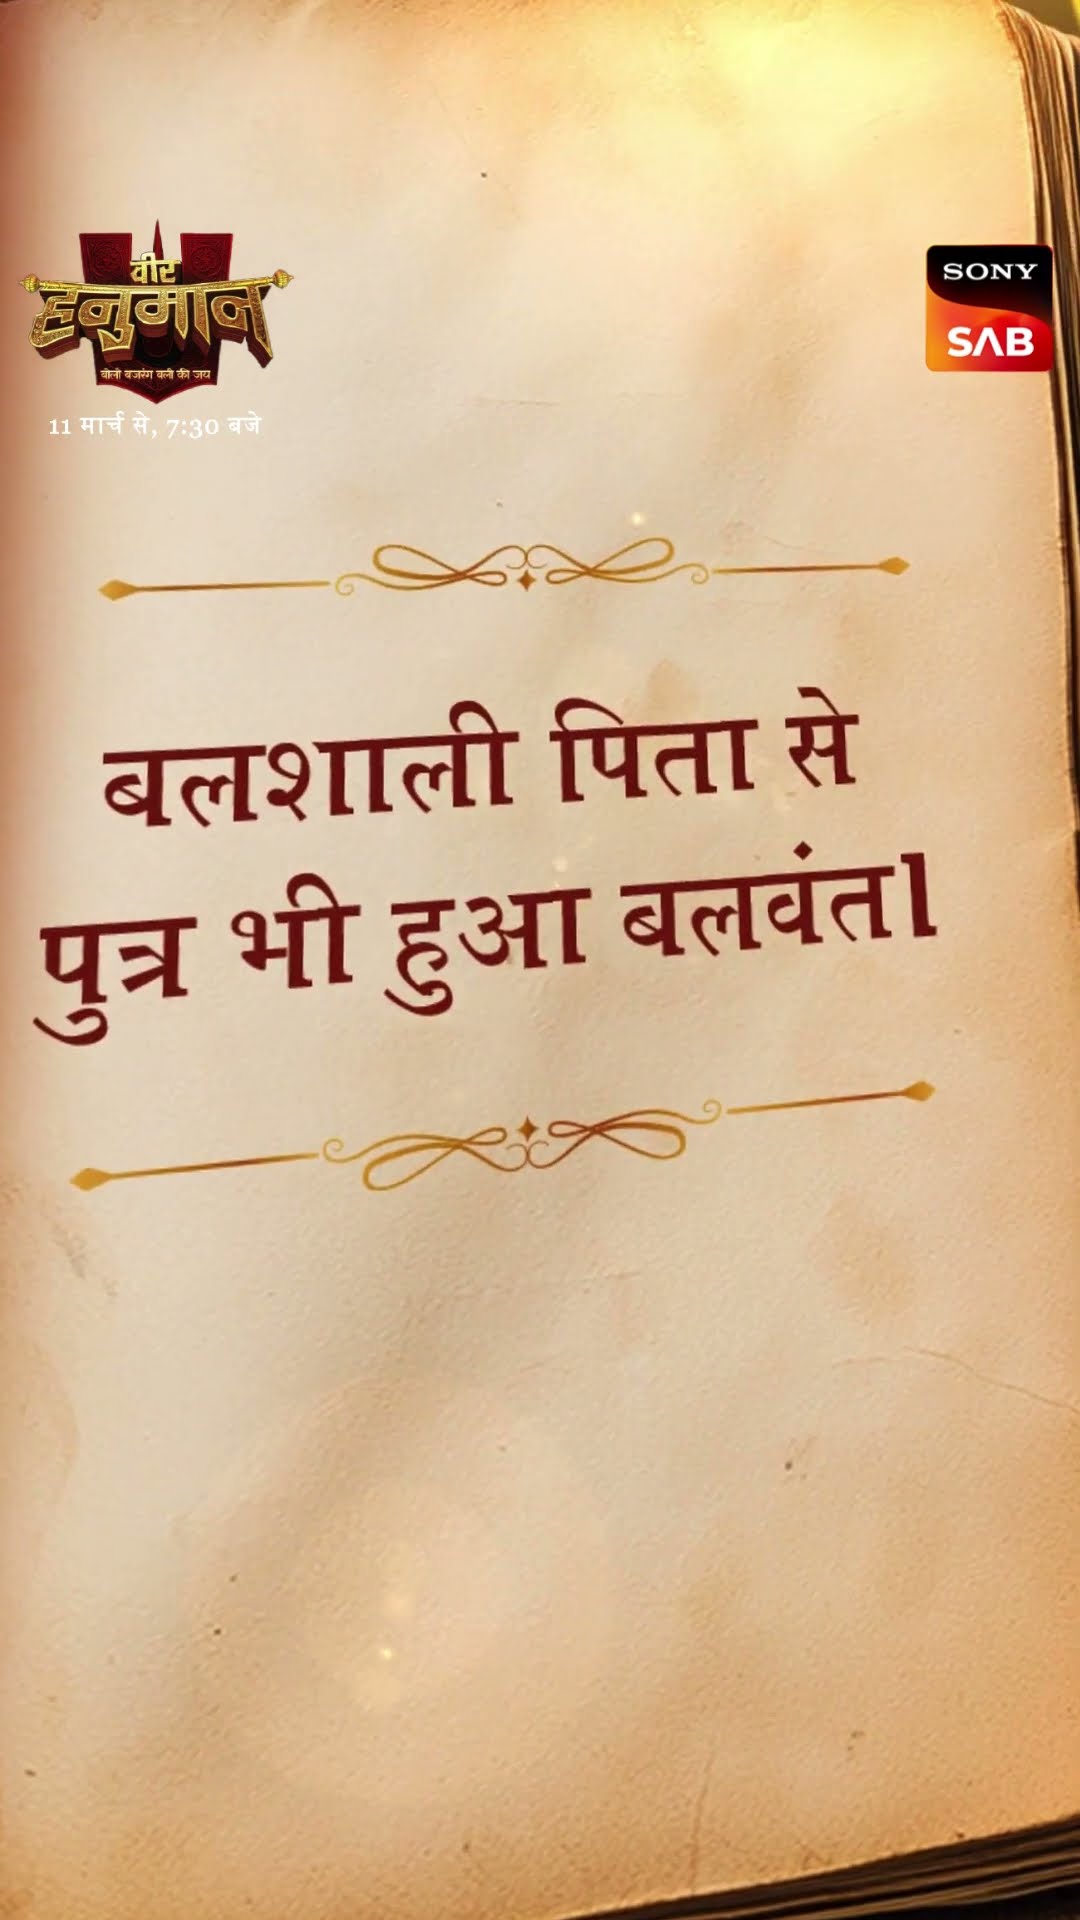 वीर
हनुमान
बोलो बजरंग बली की जय
11 मार्च से, 7:30 बजे
SONY
SAB
बलशाली पिता से
पुत्र भी हुआ बलवंत।